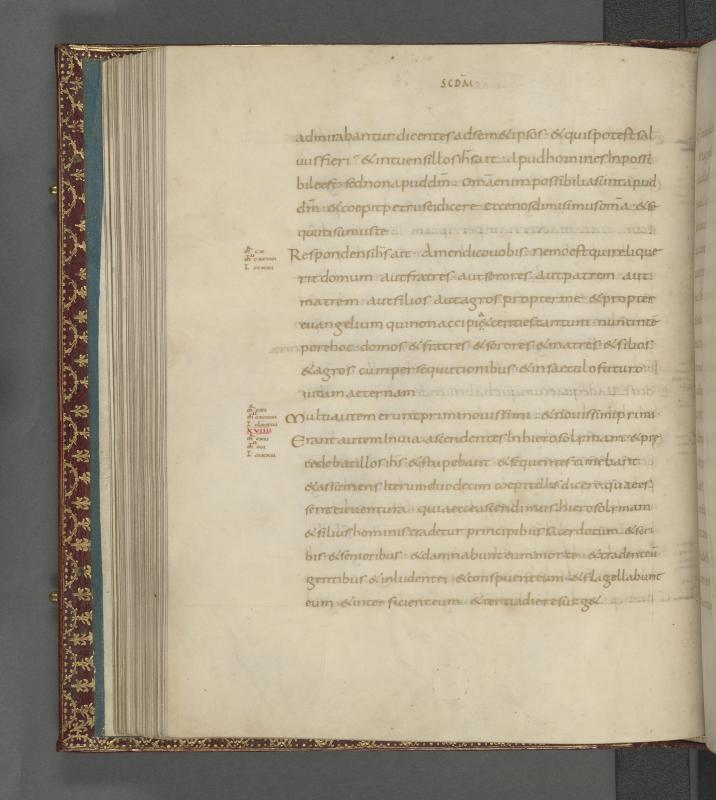 SCDM̄
admirabantur dicentes adsem&ipsos · &quis potest sal
uus fieri · &intuens illos ih̄s ait · apud homines Inpossi
bile est · sed non apud dm̄ · Om̄a enim possibilia sunt apud
dm̄ · &coepit petrus ei dicere · ecce nos dimisimus om̄a · &se
quuti sumus te
Respondens ih̄s ait · Amen dico uobis · nemo est qui relique
rit domum · aut fratres · aut sorores · aut patrem · aut
matrem · aut filios · aut agros propter me · &propter
euangelium qui non accipi&centies tantum · nunc in tē
pore hoc · domos · &fratres · &sorores · &matres · &filios ·
&agros · cum persequutionibus · &in saeculo futuro
uitam aeternam
Multi autem erunt primi nouissimi · &nouissimi primi
XVIIII
Erant autem In uia · ascendentes In hierosolimam · &prę
cedebat illos ih̄s · &stupebant · &sequentes timebant
&assumens Iterum duodecim coepit illis dicere quae es
sent ei uentura · quia ecce ascendimus hierosolimam
&filius hominis tradetur principibus sacerdotum · &scri
bis · &senioribus · &damnabunt eum morte · &tradent eū
gentibus · &inludent ei · &conspuent eum · &flagellabunt
eum · &interficient eum · &tertia die resurg&